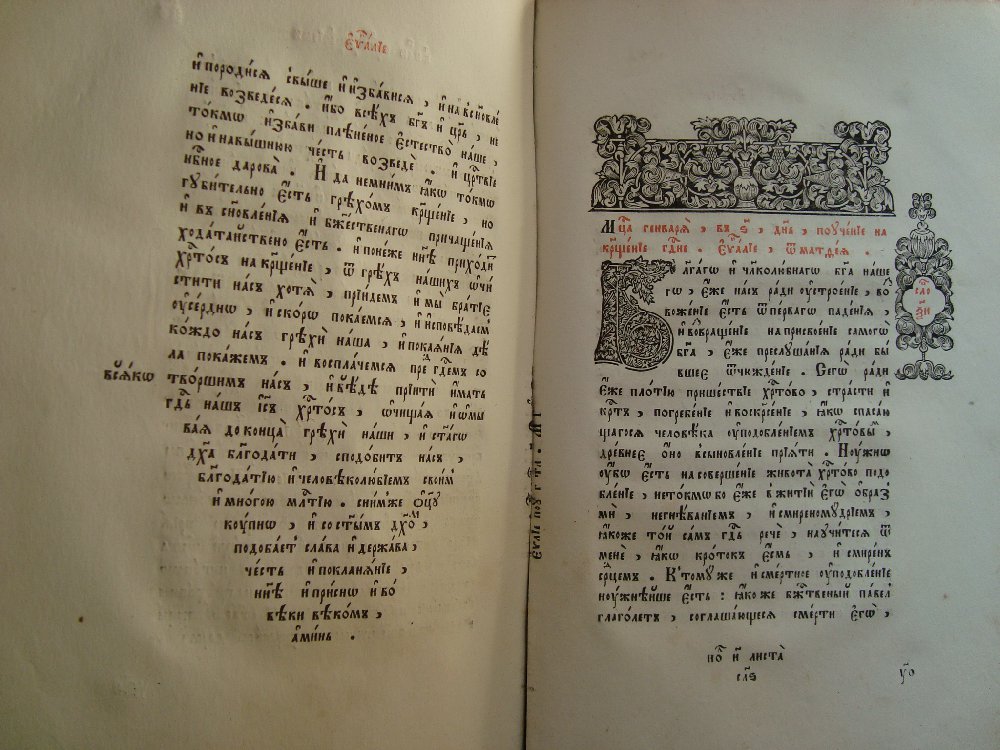 є҆ѵⷢ҇лїе
и҆ породисѧ свыше и҆ и҆збависѧ , и҆ на всн҃овле
нїе возведесѧ . и҆бо всѣхъ бг҃ъ и҆ цр҃ь , не
токмѡ и҆збави плѣненое є҆стество̀ на́ше ,
но и҆ навышнюю че́сть возведѐ . и҆ црⷭ҇твїе
нбⷭ҇ное дарова̀ . И҆ да немнимъ ꙗ҆́кѡ то́кмѡ
губительно є҆сть грѣхо́мъ крⷭ҇щенїе , но
и҆ въ сн҃овле́нїѧ и҆ бжⷭ҇твенагѡ причаще́нїѧ
хода́тайствено є҆́сть . и҆ понеже нн҃ѣ прихо́ди
хрⷭ҇то́съ на крⷭ҇ще́нїе , ѿ грѣ́хъ на́шихъ ѡ҆чи
стити на́съ хотѧ̀ , прїи́демъ и҆ мы̀ бра́тїе
ᲂу҆се́рднѡ , и҆ ско́рѡ пока́емсѧ , и҆ и҆сповѣ́даем
ко́ждо на́съ грѣхѝ на́ша , и҆ покаѧ́нїѧ дѣ
ла̀ пока́жемъ . и҆ воспла́чемсѧ преⷣ гдⷭ҇емъ со
всѧ́кѡ
тво́ршимъ на́съ , и҆ бꙋ́дѣ прїитѝ и҆мать
гдⷭ҇ь на́шъ і҆с҃ъ хрⷭ҇то́съ , ѡ҆чища́ѧ и҆ ѡ҆мы
ва́ѧ до конца̀ грѣхѝ на́ши , и҆ ст҃а́гѡ
дх҃а блгⷣода́ти , сподо́битъ на́съ ,
блгⷣода́тїю и҆ человѣколю́бїемъ свои́м
и҆ мно́гою млⷭ҇тїю . сни́мже ѻ҆ц҃ꙋ
кꙋ́пнѡ , и҆ со ст҃ы́мъ дх҃ом
подоба́етъ сла́ва и҆ держа́ва ,
че́сть и҆ поклонѧ́нїе ,
нн҃ѣ и҆ при́снѡ и҆ во
вѣ́ки вѣко́мъ ,
а҆ми́нь .
Мцⷭ҇а генва́рѧ , въ ѕ҃ , дн҃ь , поꙋче́нїе на
крⷭ҇ще́нїе гдⷭ҇не . є҆ѵⷢ҇лїе , ѿ матѳе́ѧ .
сло
Бл҃га́гѡ и҆ чл҃колю́бнагѡ бг҃а на́ше
гѡ , є҆́же на́съ ра́ди ᲂу҆строе́нїе , во
бо҃же́нїе є҆́сть ѿ пе́рвагѡ паде́нїѧ ,
и҆ вовраще́нїе на присвое́нїе самогѡ̀
бг҃а , є҆́же преслꙋша́нїѧ ра́ди бы́
вшее ѿчꙋжде́нїе . Сегѡ̀ ра́ди
є҆́же пло́тїю прише́ствїе хрⷭ҇то́во , стра́сти и҆
крⷭ҇тъ , погребе́нїе и҆ воскрⷭ҇е́нїе , ꙗ҆́кѡ спаса́ю
щагосѧ человѣ́ка ᲂу҆подобле́нїемъ хрⷭ҇то́вым ,
дре́внее ѻ҆но̀ всыновле́нїе прїѧ́ти . Ноꙋ́жнѡ
ᲂу҆́бѡ є҆́сть на соверше́нїе живота̀ хрⷭ҇то́во подо
бле́нїе , нето́кмѡ бо є҆́же в житїѝ є҆гѡ̀ о҆бра́з
мѝ , негнѣ́ванїемъ , и҆ смиреномꙋ́дрїемъ ,
ꙗ҆́коже то́й са́мъ гдⷭ҇ь речѐ , наꙋчи́тесѧ ѿ
менѐ , ꙗ҆́кѡ кро́токъ є҆́смь , и҆ смире́нъ
се́рдцемъ . К томꙋ́ же и҆ сме́ртное ᲂу҆подобле́нїе
ноꙋ́жнѣйше є҆́сть : ꙗ҆́ко же бж҃твеный па́вел
глаго́летъ , соглаша́ющеесѧ сме́рти є҆гѡ̀ ,
листа̀
слѕ